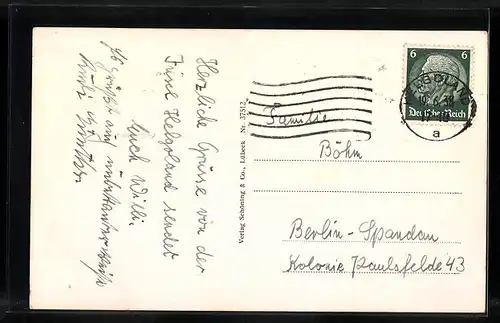 Herzliche Grüsse von der
Insel Helgoland sendet
Euch Willi.
Es grüßt auch unbekannterweise
Verlag Schöning & Co., Lübeck Nr. 37812
6 6
Deutsches Reich
a
Familie
Böhm
Berlin-Spandau
Kolonie Paulsfelde 43